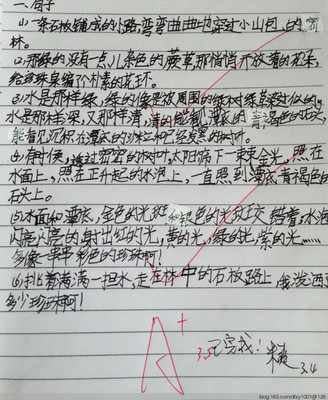 一、句子
(1)一条石板铺成的小路,弯弯曲曲地穿过小山包上的密
林。
(2)那绿的没有一点儿杂色的蕨草,那悄悄开放着的花朵,
给珍珠泉编了个朴素的花环。
(3)水是那样绿,绿的像是被周围的绿树绿草染过似的,
水是那样深,又那样清,清的能看见潭底的青褐色的石头,
能看见沉积在潭底的沙粒和已经发黑的树叶。
(4)有时候,透过密密的树叶,太阳筛下一束束金光,照在
水面上,照在正升起的水泡上,一直照到潭底青褐色的
石头上。
(5)水面和潭底,金色的光斑和银色的光斑交错着;水泡
闪亮闪亮的,射出红的光,黄的光,绿的光,紫的光……
多像一串串彩色的珍珠啊!
(6)挑着满满一担水,走在林中的石板路上,我泼洒
多少珍珠啊!
A+
已穷我!
3.4
blog.163.com/dhsy1001@126